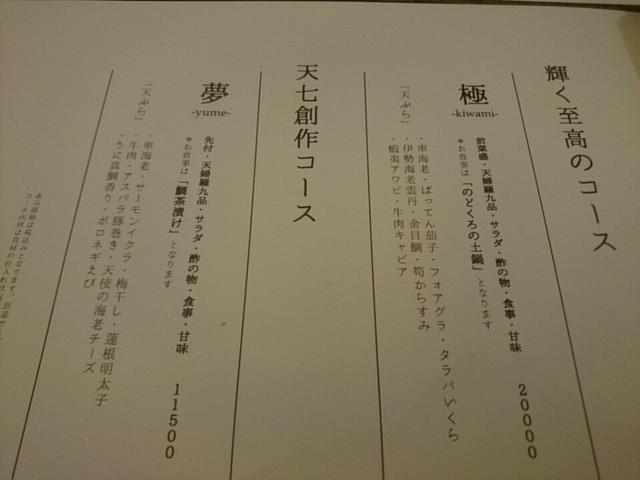 輝く至高のコース
極
-kiwami-
前菜盛・天婦羅九品・サラダ・酢の物・食事・甘味
20000
*お食事は「のどくろの土鍋」となります
「天ぷら」
・車海老・ばってん茄子・フォアグラ・タラバいくら
・伊勢海老雲丹・金目鯛・筍からすみ
・蝦夷アワビ・牛肉キャビア
天七創作コース
夢
-yume-
先付・天婦羅九品・サラダ・酢の物・食事・甘味
11500
*お食事は「鯛茶漬け」となります
「天ぷら」
・車海老・サーモンイクラ・梅干し・蓮根明太子
・牛肉・アスパラ豚巻き・天使の海老チーズ
・うに真鯛香り・ポロネギえび
表示価格は税込みとなります。